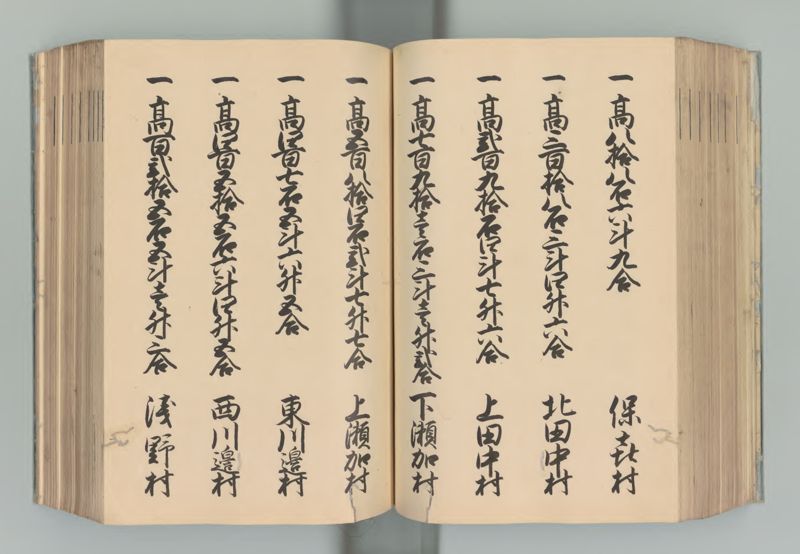 一 高八拾八石六斗九合 保喜村
一 高三百拾八石三斗四升六合 北田中村
一 高弐百九拾石四斗七升六合 上田中村
一 高七百九拾壱石三斗壱升弐合 下瀬加村
一 高五百八拾四石弐斗七升七合 上瀬加村
一 高四百七石五斗六升五合 東川邉村
一 高四百五拾五石六斗四升五合 西川邉村
一 高百弐拾五石五斗壱升二合 浅野村